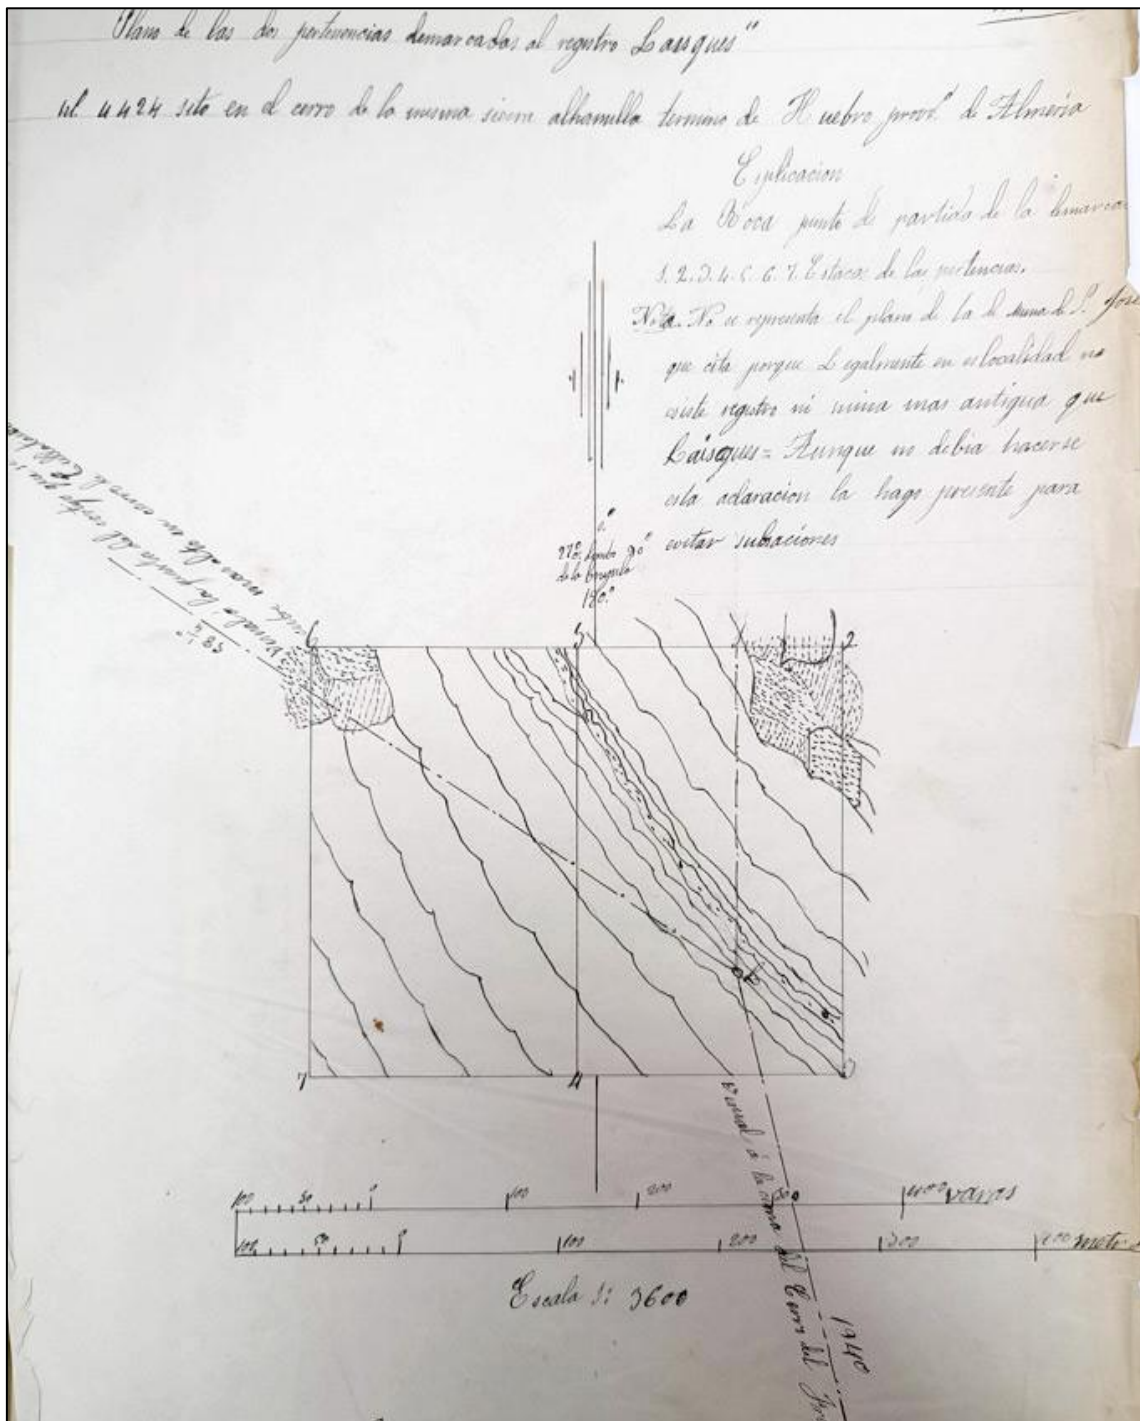 Plano de las dos pertenencias demarcadas al registro Laisques"
nl 4424 sito en el cerro de la misma sierra alhamilla termino de Huebro prov.ª de Almeria
Esplicacion
La Boca punto de partida de la demarca
1. 2. 3. 4. 5. 6. 7. Estacas de las pertencias.
Nota. No se representa el plano de la mina de S. José
que cita porque Legalmente en es localidad no
esiste registro ni mina mas antigua que
Laisques = Aunque no debia hacerse
esta aclaracion la hago presente para
evitar
0.º
270º 90º
de la brujula
180.º
Visual a la punta del
mas alta en
6 5 1 2
7 4 3
Visual á la cima del Cerro del
194º
100 50 0 100 200 300 400 varas
100 50 0 100 200 300 400 metros
Escala 1: 3600